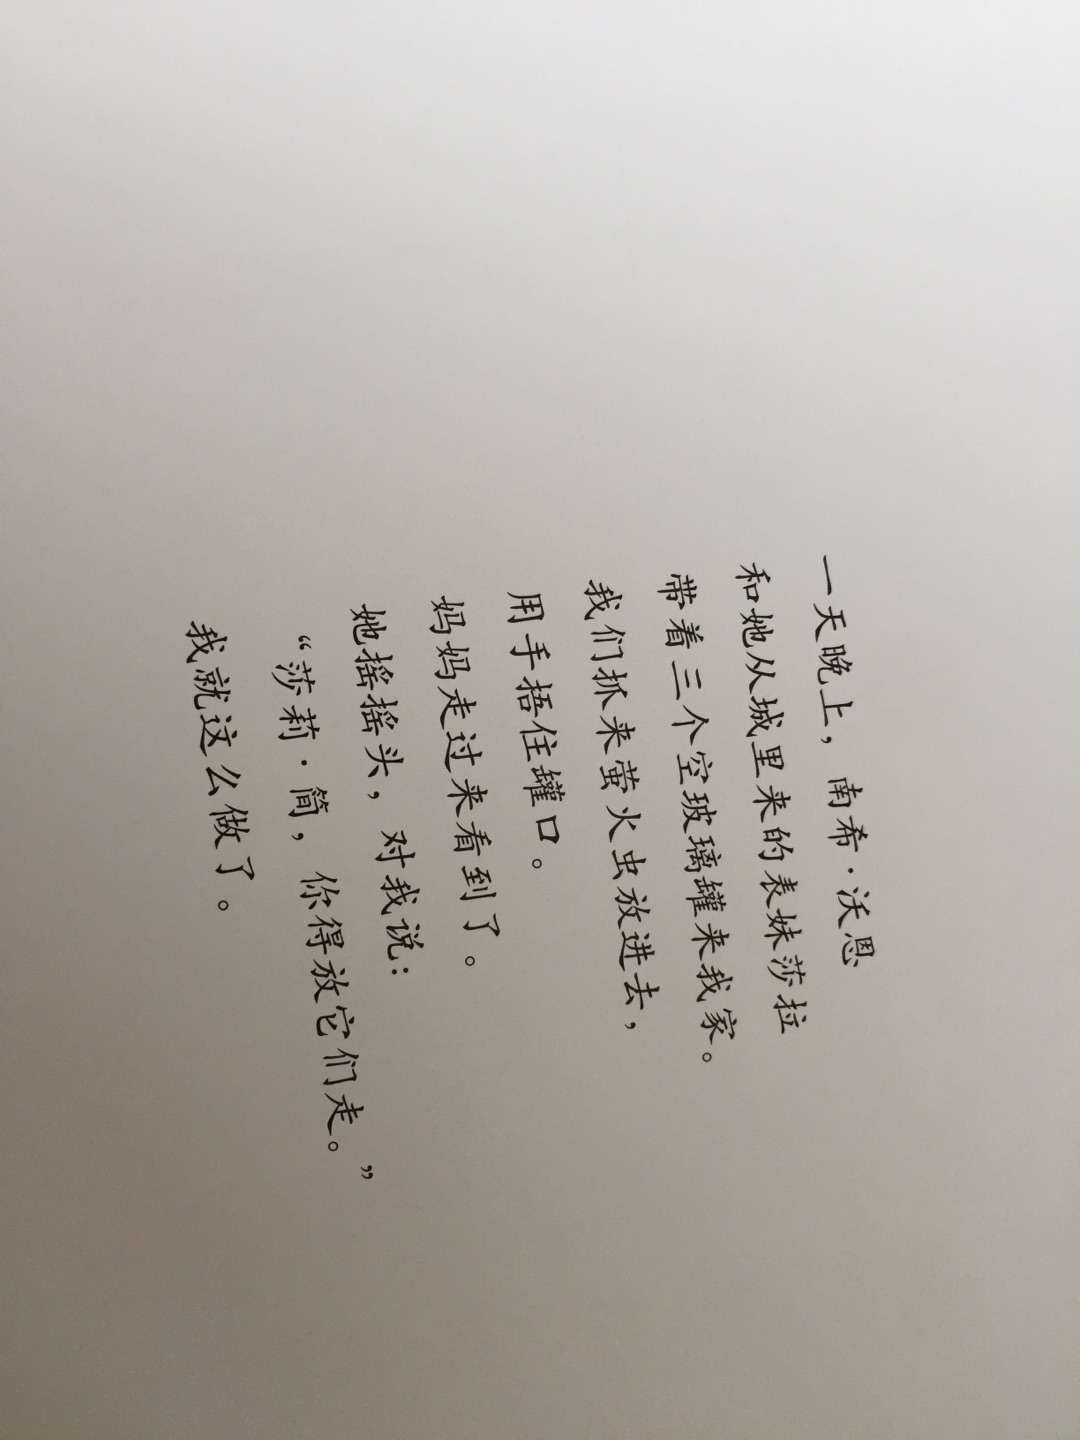 一天晚上，南希·沃恩
和她从城里来的表妹莎拉
带着三个空玻璃罐来我家。
我们抓来萤火虫放进去，
用手捂住罐口。
妈妈走过来看到了。
她摇摇头，对我说：
“莎莉·简，你得放它们走。”
我就这么做了。